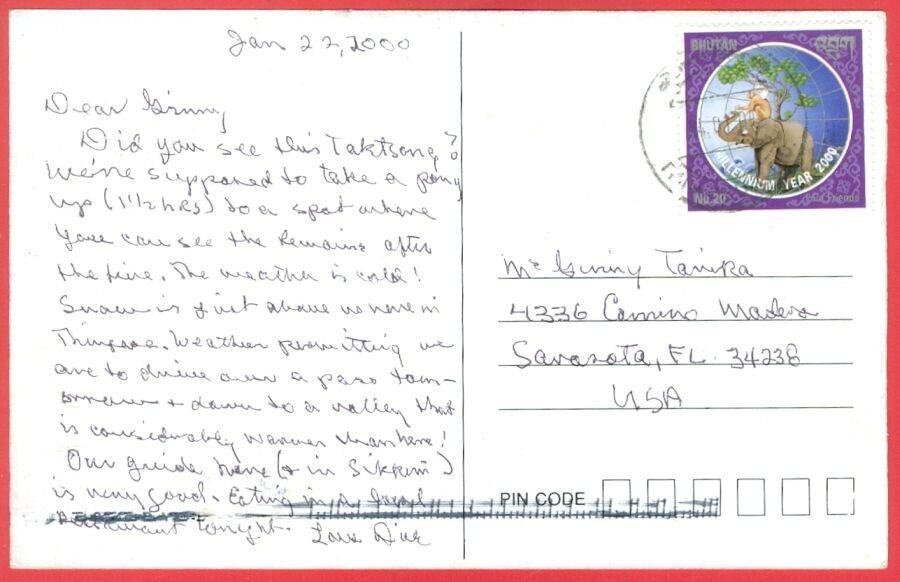 Jan 22, 2000
Dear Ginny
Did you see this Taktsong?
We're supposed to take a pony
up (1 1/2 hrs) to a spot where
you can see the remains after
the fire. The weather is cold!
Snow is just above us here in
Weather permitting we
are to drive over a pass tom-
orrow + down to a valley that
is considerably warmer than here!
Our guide here (+ in Sikkim)
is very good. Eating in a local
restaurant tonight. Love
BHUTAN
MILLENNIUM YEAR 2000
Nu.20
Four Friends
Ms Ginny
4336 Camino Madera
Sarasota, FL 34238
USA
PIN CODE